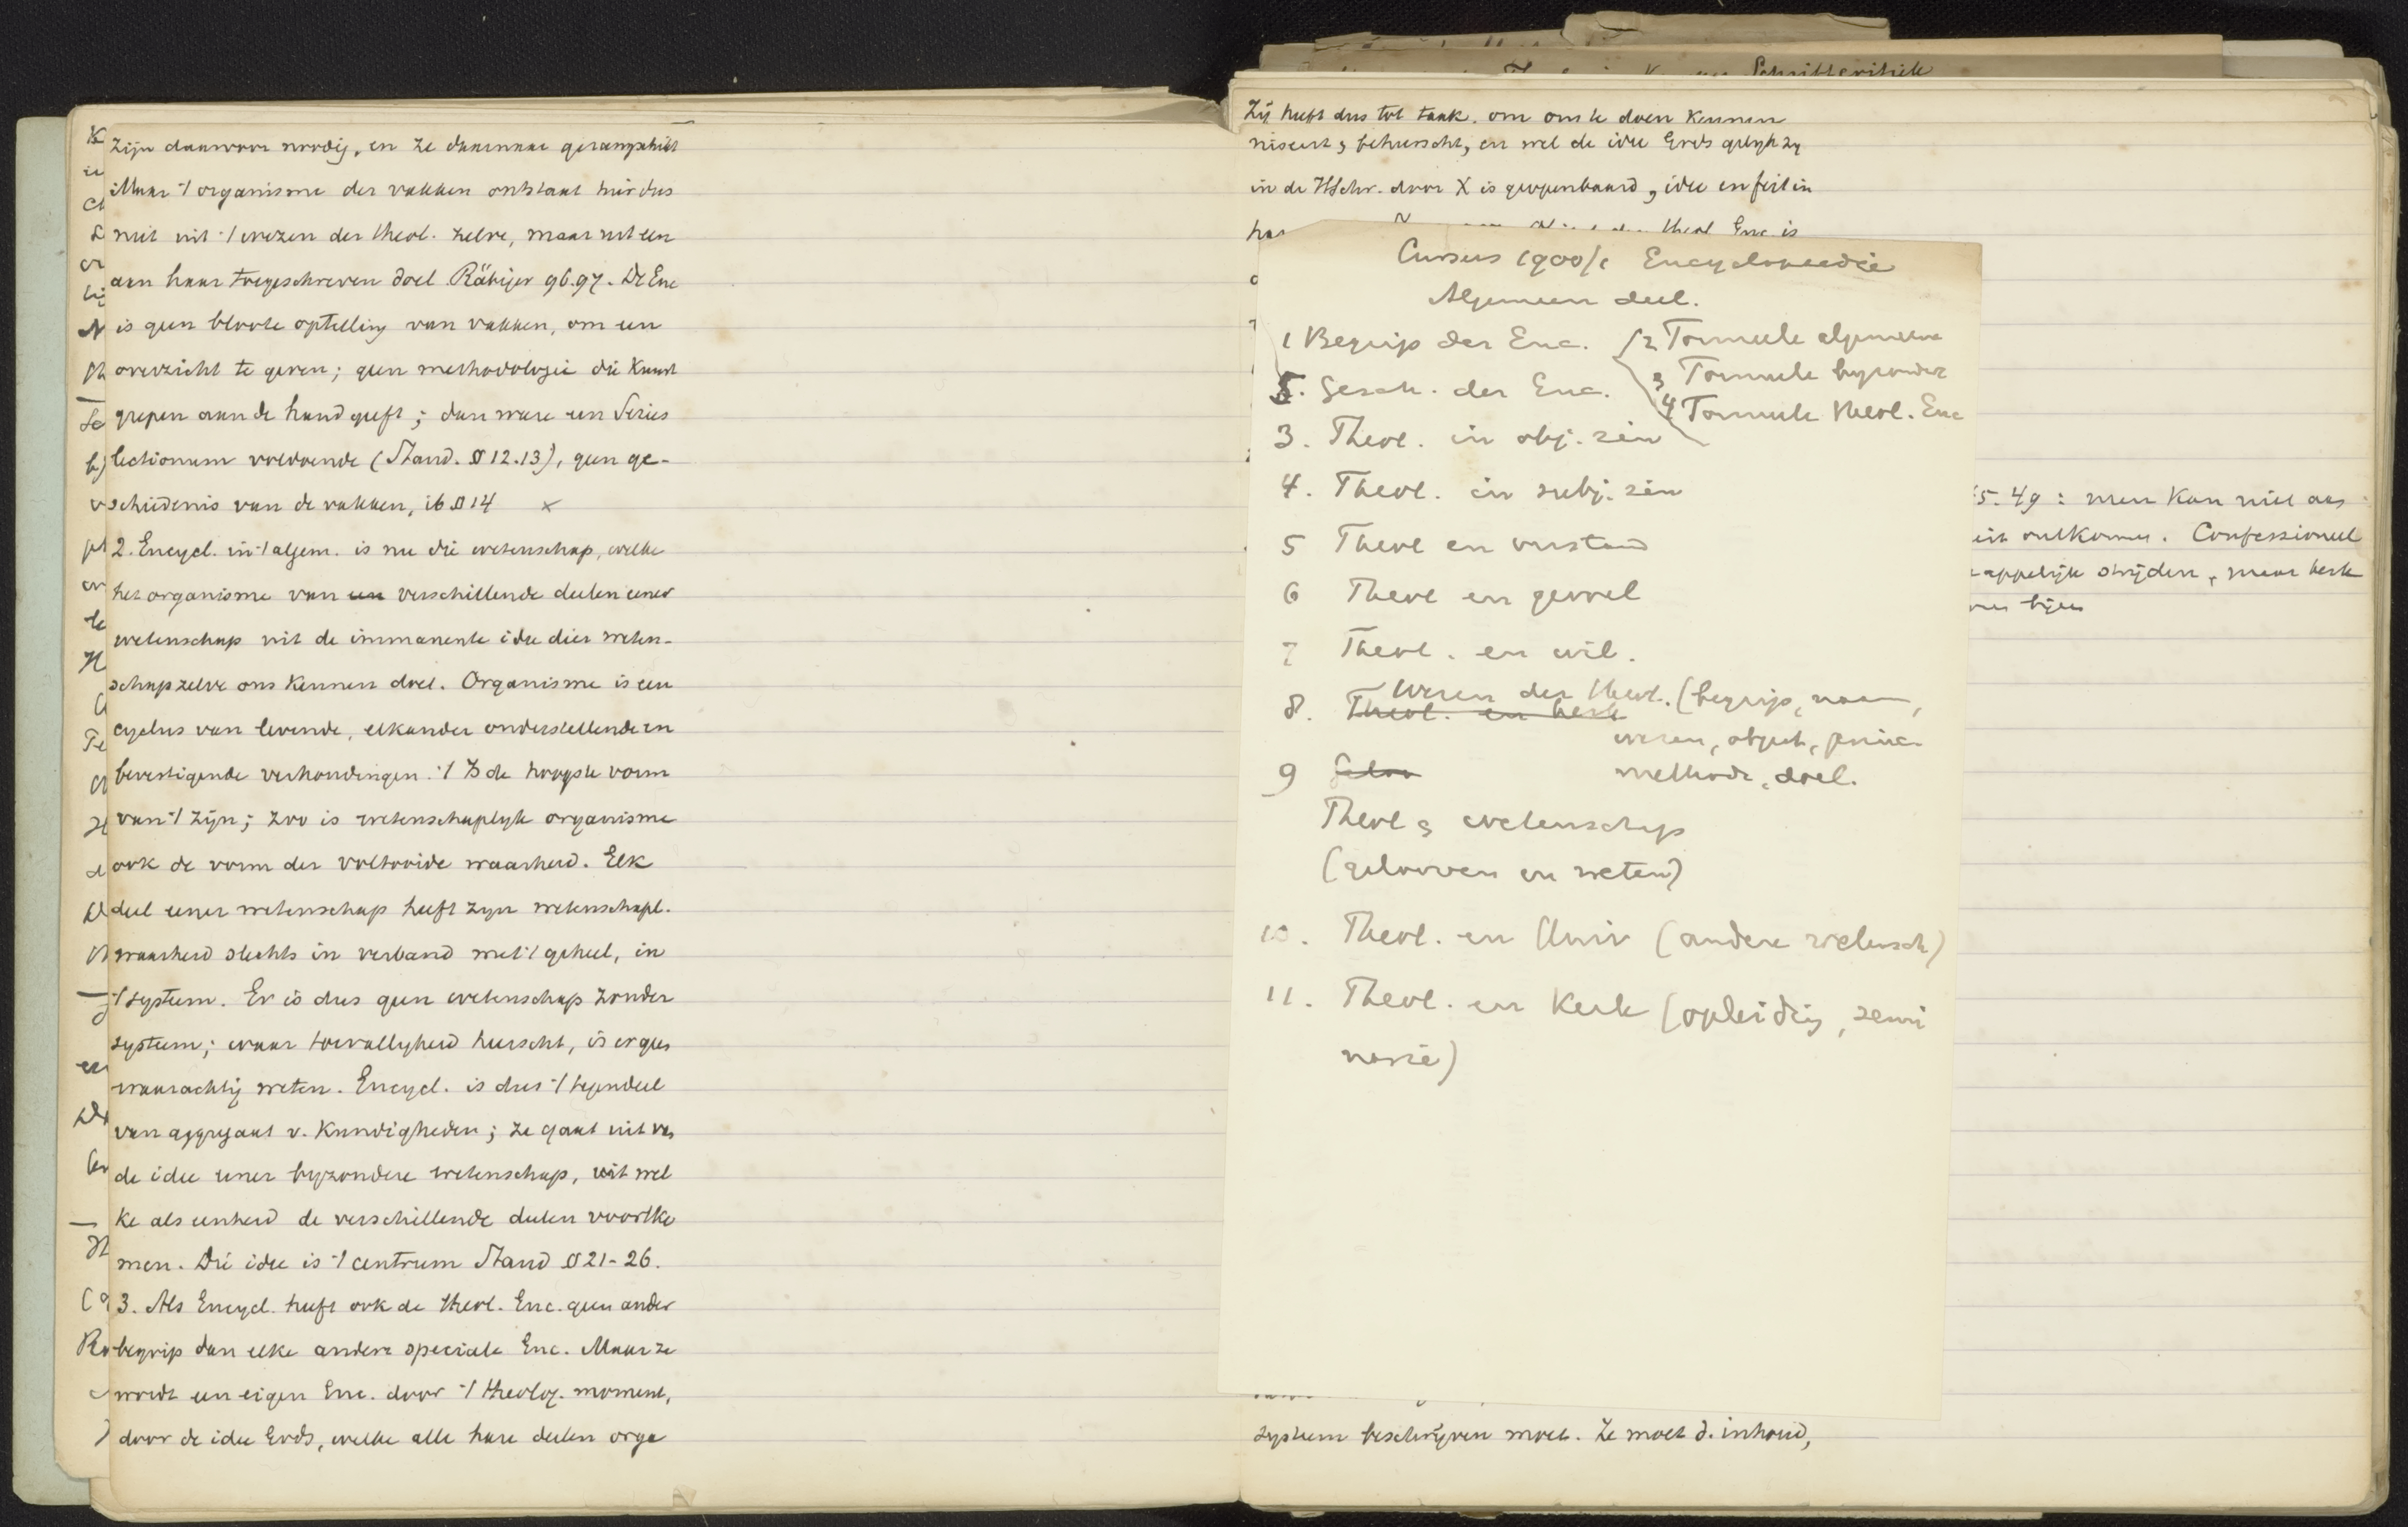 zijn daarvoor noodig, en ze daarnaar gerangschikt
Maar 't organisme der vakken ontstaat hier dus
niet uit 't wezen der theol. zelve, maar uit een
aan haar toegeschreven doel Räbiger 96.97. De Enc
is geen bloote optelling van vakken, om een
overzicht te geven; geen methodologie die kunst
grepen aan de hand geeft; dan ware een Series
lectionum voldoende (Stand. § 12.13), geen ge-
schiedenis van de vakken, ib § 14 ×
2. Encycl. in 't algem. is nu die wetenschap, welke
het organisme van een verschillende deelen eener
wetenschap uit de immanente idee dier weten-
schap zelve ons kennen doet. Organisme is een
cyclus van levende, elkander onderstellende en
bevestigende verhoudingen. 't Is de hoogste vorm
van 't zijn; zoo is wetenschaplyk organisme
ook de vorm der voltooide waarheid. Elk
deel eener wetenschap heeft zyn wetenschapl.
waarheid slechts in verband met 't geheel, in
't systeem. Er is dus geen wetenschap zonder
systeem; waar toevallyheid heerscht, is er geen
waarachtig weten. Encycl. is dus 't tegendeel
van aggregaat v. kundigheden; ze gaat uit van
de idee eener byzondere wetenschap, uit wel
ke als eenheid de verschillende deelen voortko
men. Die idee is 't centrum Stand § 21-26.
3. Als Encycl. heeft ook de theol. Enc. geen ander
begrip dan elke andere speciale Enc. Maar ze
wordt een eigen Enc. door 't theolog. moment,
door de idee Gods, welke alle hare deelen orga
Schriftcritiek
Zij heeft dus tot taak om ons te doen kennen
niseert & beheerscht, en wel de idee Gods gelyk zy
in de HSchr. door X is geopenbaard, idee en feit in
theol Enc. is
Cursus 1900/1 Encyclopaedie
Algemeen deel.
1 Begrip der Enc. 2 Formeele algemeene
3 Formeele byzonder
5. Gesch. der Enc. 4 Formeele theol. Enc
3. Theol. in obj. zin
4. Theol. in subj. zin
5 Theol en verstand
6 Theol en gevoel
7 Theol. en wil.
Wezen der theol. (begrip, naam,
8. Theol. en kerk
wezen, object, princ.
9 methode, doel.
Theol & wetenschap
(gelooven en weten)
10. Theol. en Univ (andere wetensch)
11. Theol. en Kerk (opleidig, semi
narie)
5.49: men kan niet aan
uit ontkomen. Confessioneel
appelijk strijden, maar kerk
systeem beschrijven moet. Ze moet d. inhoud,